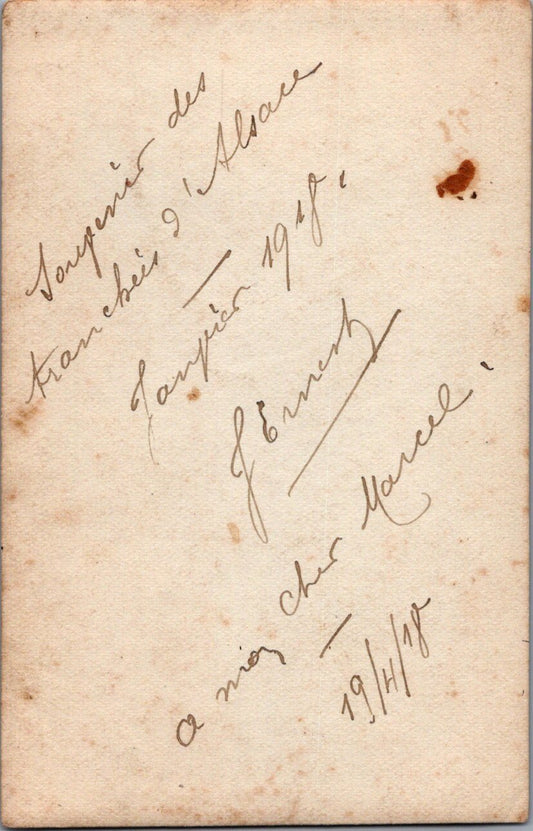 Souvenir des
tranchées d'Alsace
Janvier 1918.
J Ernest
a mon cher Marcel.
19/4/18